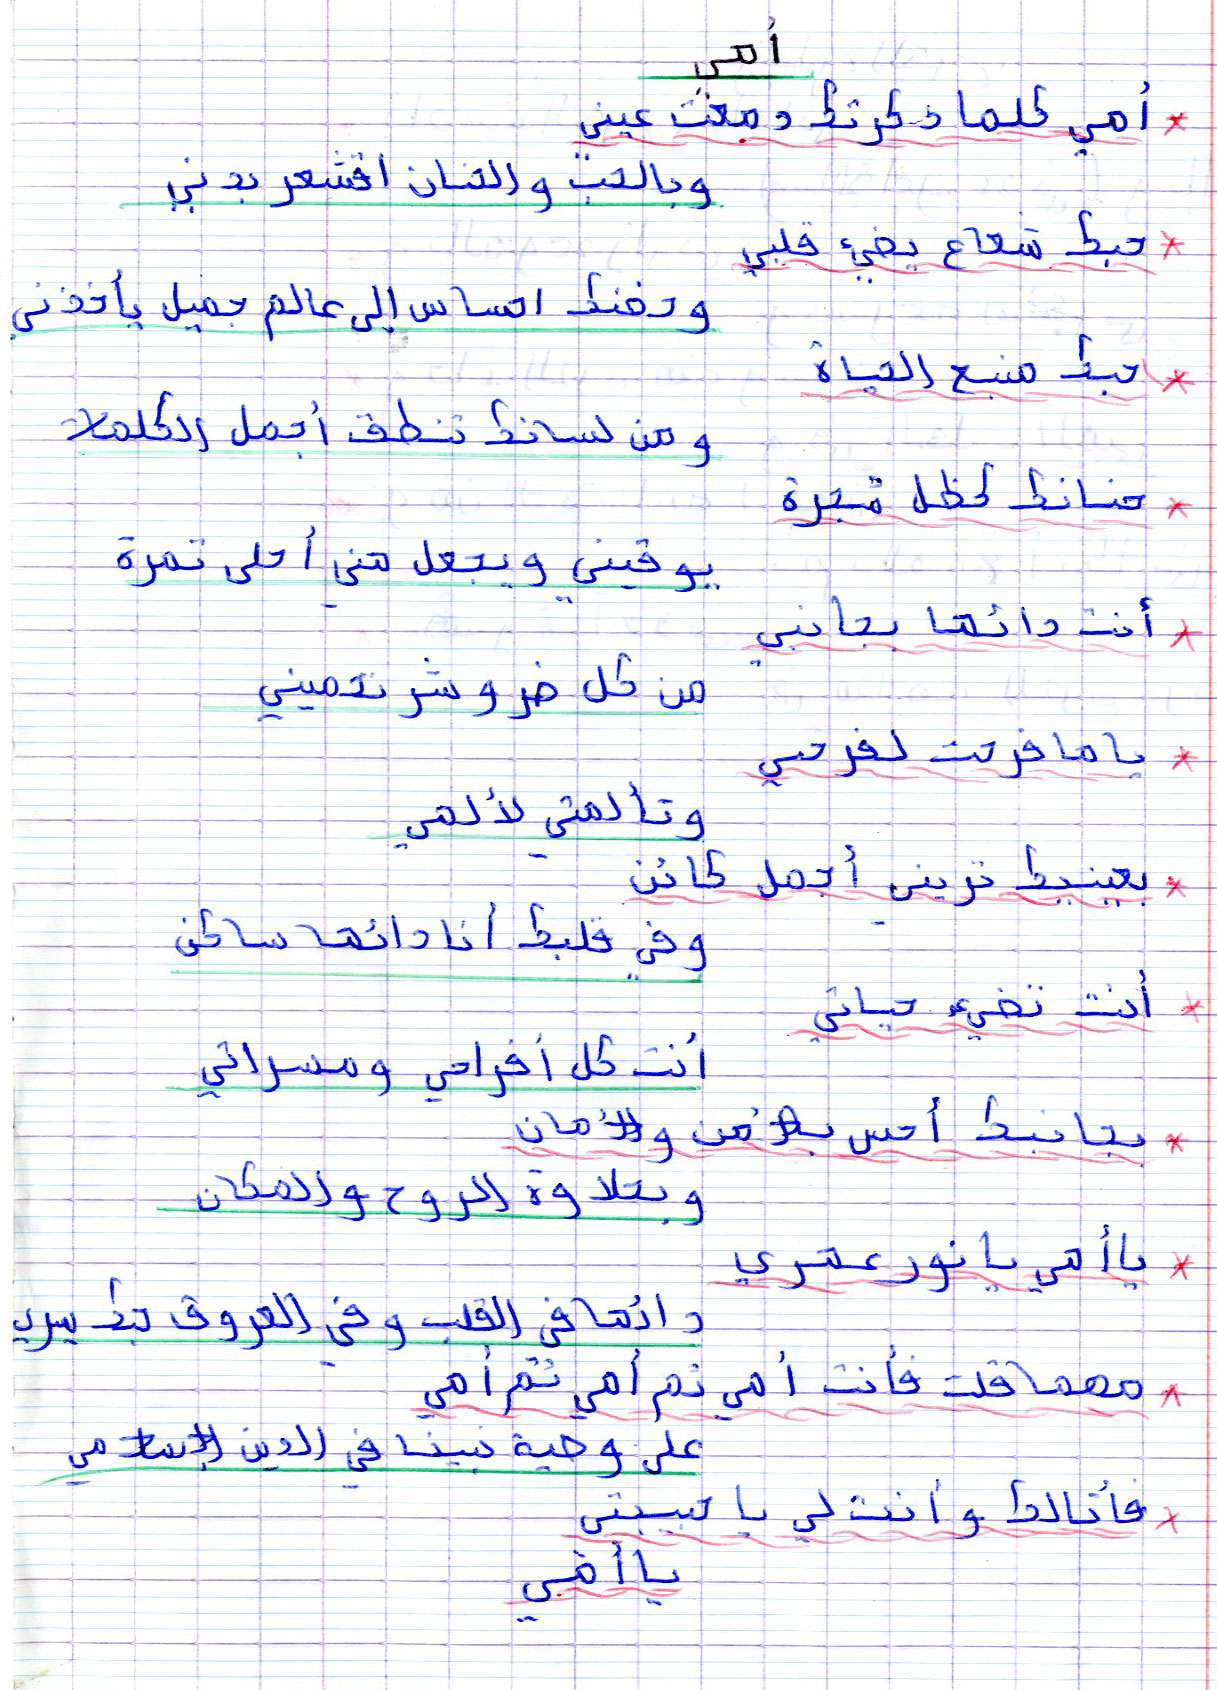 أمي
* أمي كلما ذكرتك دمعت عيني
وبالحب والحنان اقشعر بدني
* حبك شعاع يضيء قلبي
وحضنك احساس إلى عالم جميل يأخذني
* حبك منبع الحياة
ومن لسانك تنطق أجمل الكلمات
* حنانك كظل شجرة
يوقيني ويجعل مني أحلى ثمرة
* أنت دائما بجانبي
من كل ضر وشر تحميني
* ياما فرحت لفرحي
وتألمتي لألمي
* بعينيك تريني أجمل كائن
وفي قلبك أنا دائما ساكن
* أنت تضيء حياتي
أنت كل أفراحي ومسراتي
* بجانبك أحس بالأمن والأمان
وبحلاوة الروح والمكان
* يا أمي يا نور عمري
دائما في القلب وفي العروق حبك يسري
* مهما قلت فأنت أمي ثم أمي ثم أمي
على وصية نبينا في الدين الإسلامي
* فأنا لك وأنت لي يا حبيبتي
يا أمي